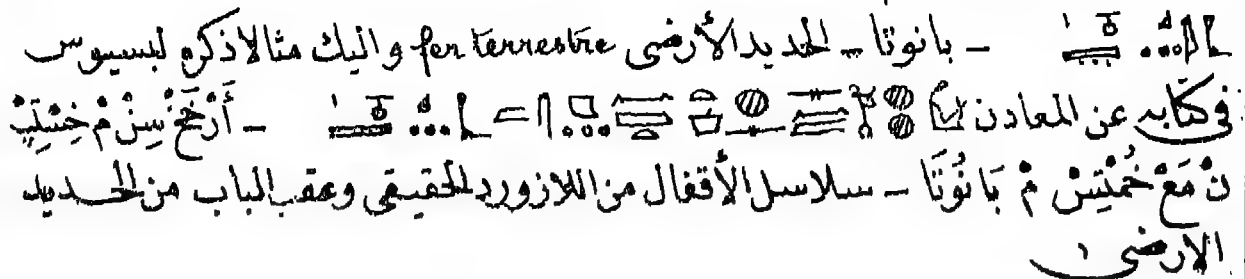 - بانوتا - الحديد الأرضى fer terrestre واليك مثالا ذكره لبسيوس
فى كتابه عن المعادن - أَرْخَخْ سِنْ مْ خِسْتِبْ
نْ مَعْ خُمْتِسْ مْ بَانُوتَا - سلاسل الأقفال من اللازورد الحقيقى وعقب الباب من الحديد
الارضى ١